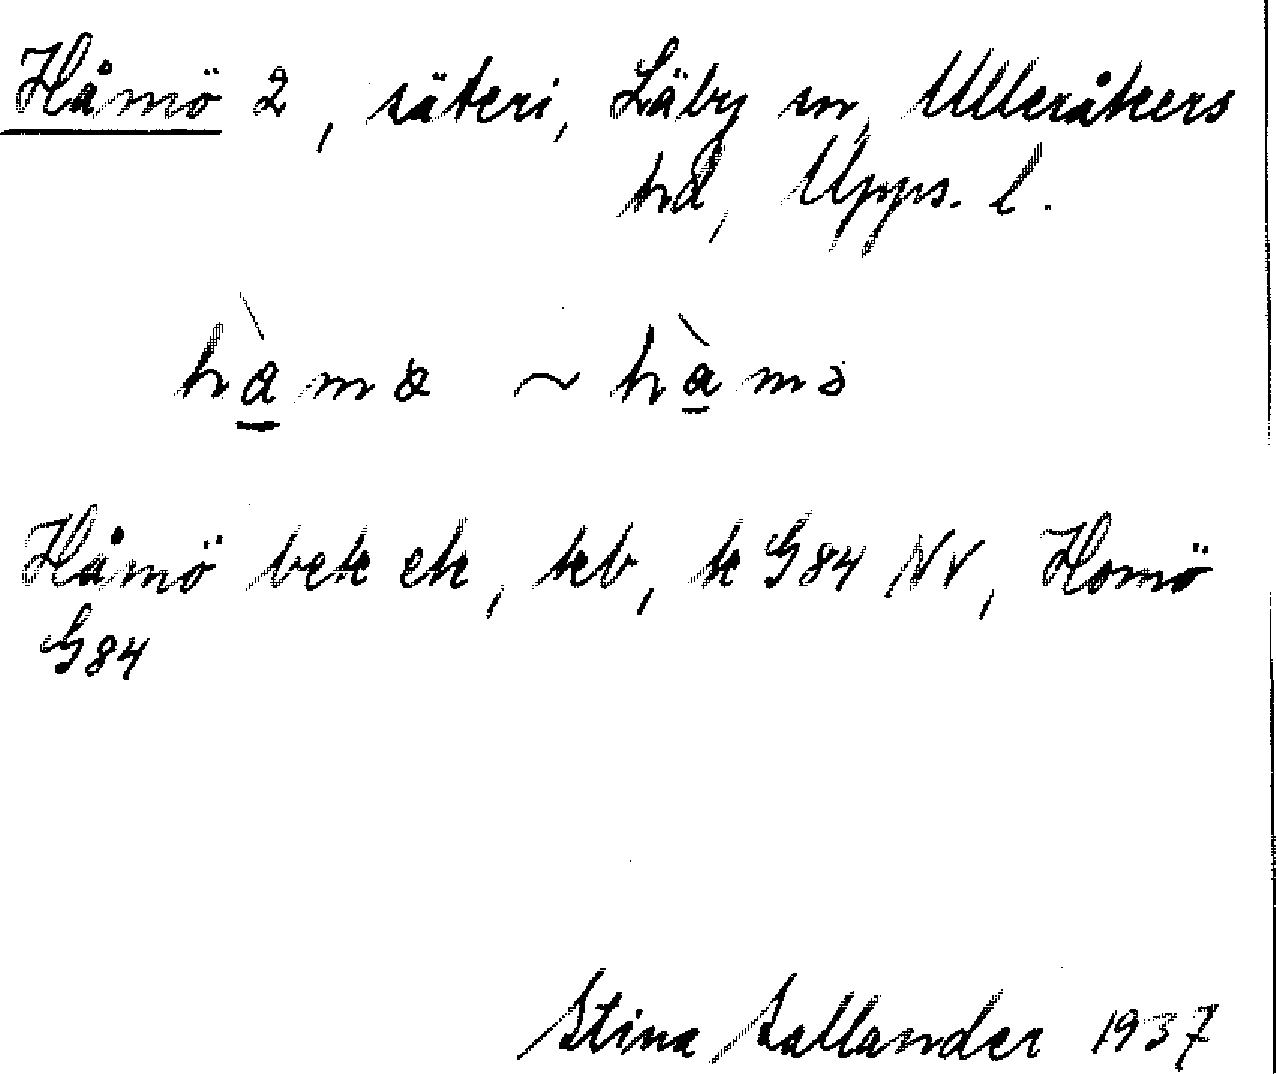 Håmö 2, säteri, Läby sn, Ulleråkers
hd, Upps. l.
Håmö bek ek, kb, k G84 NV, Homö
G84
Stina Sallander 1937